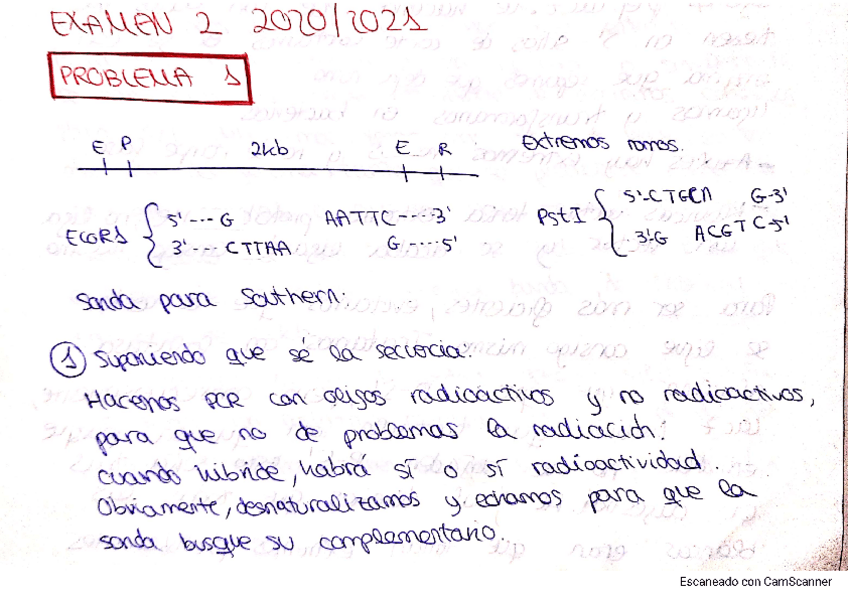 EXAMEN 2 2020/2021
PROBLEMA 1
E P 2kb E R Extremos romos.
ECORI 5'---G AATTC----3'
3'---CTTAA G----5'
PstI 5'-CTGCA G-3'
3'-G ACGTC-5'
Sonda para Southern:
① Suponiendo que sé la secuencia:
Hacemos PCR con oligos radioactivos y no radioactivos,
para que no de problemas la radiación.
cuando hibride, habrá sí o sí radioactividad.
Obviamente, desnaturalizamos y echamos para que la
sonda busque su complementario.
Escaneado con CamScanner